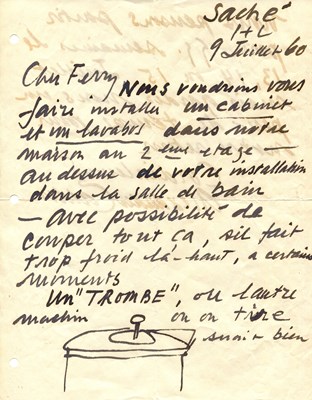 Saché
I+L
9 Juillet 60
Cher Ferry
Nous voudrions vous
faire installer un cabinet
et un lavabos dans notre
maison au 2 eme etage —
au dessus de votre installation
dans la salle de bain
— avec possibilité de
couper tout ça, s'il fait
trop froid là-haut, a certains
moments
Un "TROMBE", ou l'autre
machin où on tire
serait bien